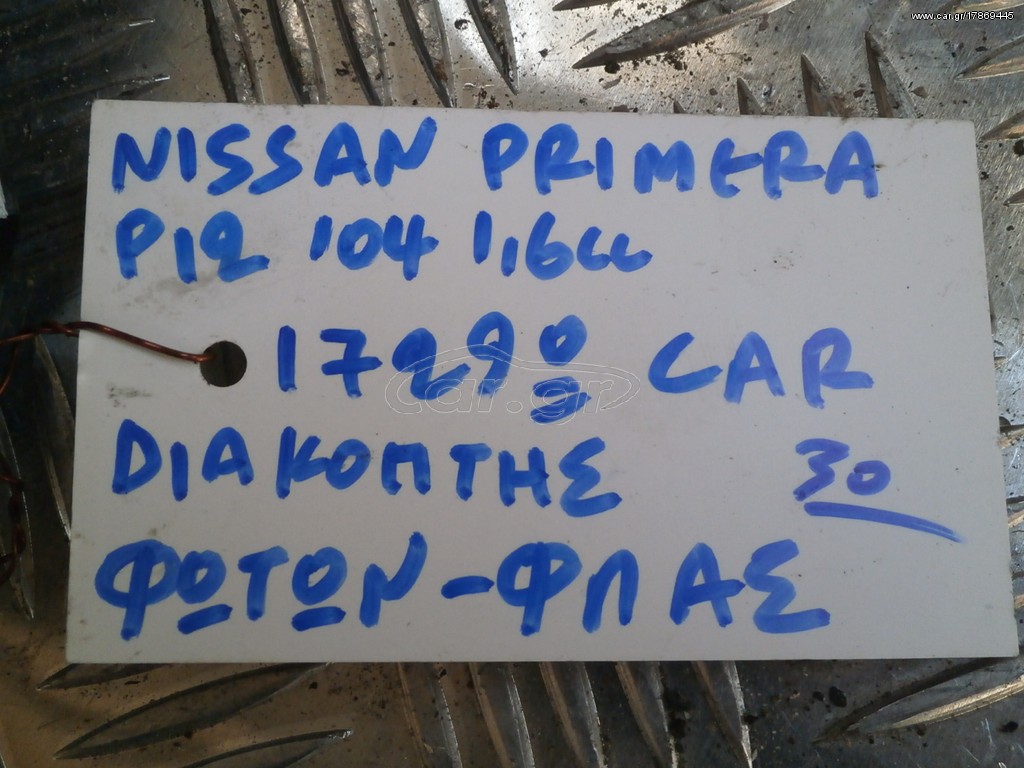 www.car.gr/17869445
NISSAN PRIMERA
P12 '04 1,6cc
17290 CAR
ΔΙΑΚΟΠΤΗΣ 30
ΦΩΤΩΝ-ΦΛΑΣ
car.gr